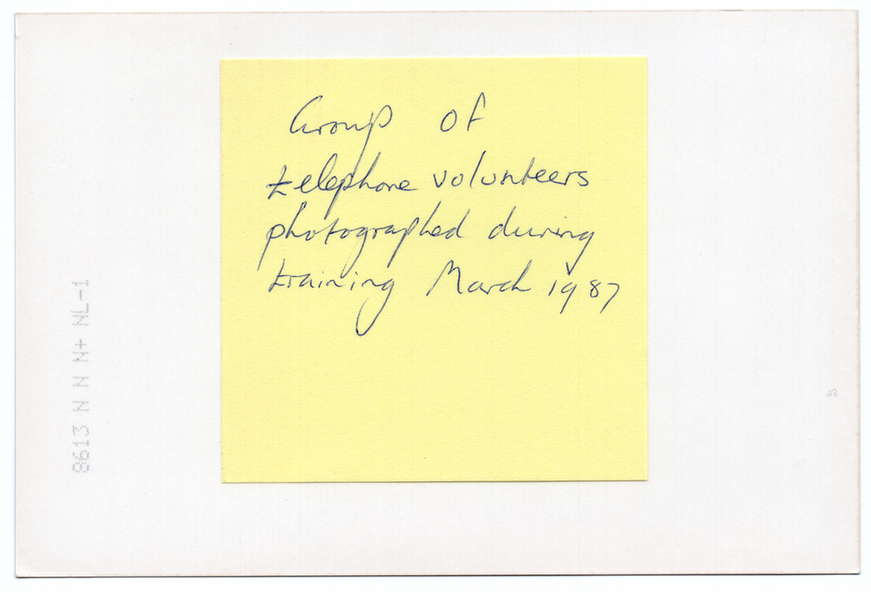 Group of
telephone volunteers
photographed during
training March 1987
8613 N N N+ NL-1